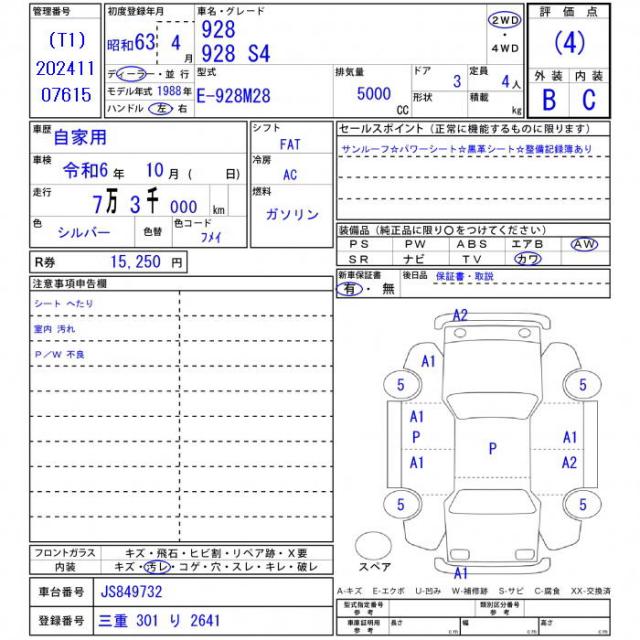 管理番号
(T1)
202411
07615
初度登録年月
昭和63年 4月
ディーラー・並行
モデル年式 1988年
ハンドル 左 右
車名・グレード
928
928 S4
2WD
・
4WD
型式
E-928M28
排気量
5000 CC
ドア 3
形状
定員 4人
積載 kg
評価点
(4)
外装 内装
B C
車歴
自家用
車検
令和6年 10月 ( 日)
走行
7万 3千 000 km
色
シルバー
色替
色コード
フメイ
シフト
FAT
冷房
AC
燃料
ガソリン
セールスポイント(正常に機能するものに限ります)
サンルーフ☆パワーシート☆黒革シート☆整備記録簿あり
装備品(純正品に限り〇をつけてください)
PS PW ABS エアB AW
SR ナビ TV カワ
R券 15,250 円
新車保証書
有・無
後日品 保証書・取説
注意事項申告欄
シート へたり
室内 汚れ
P/W 不良
A2
A1
5 5
A1
P P A1
A1 A2
5 5
スペア
A1
フロントガラス キズ・飛石・ヒビ割・リペア跡・X要
内装 キズ・汚レ・コゲ・穴・スレ・キレ・破レ
A-キズ E-エクボ U-凹み W-補修跡 S-サビ C-腐食 XX-交換済
車台番号 JS849732
登録番号 三重 301 り 2641
型式指定番号
参考
類別区分番号
参考
車庫証明用
参考
長さ cm 幅 cm 高さ cm